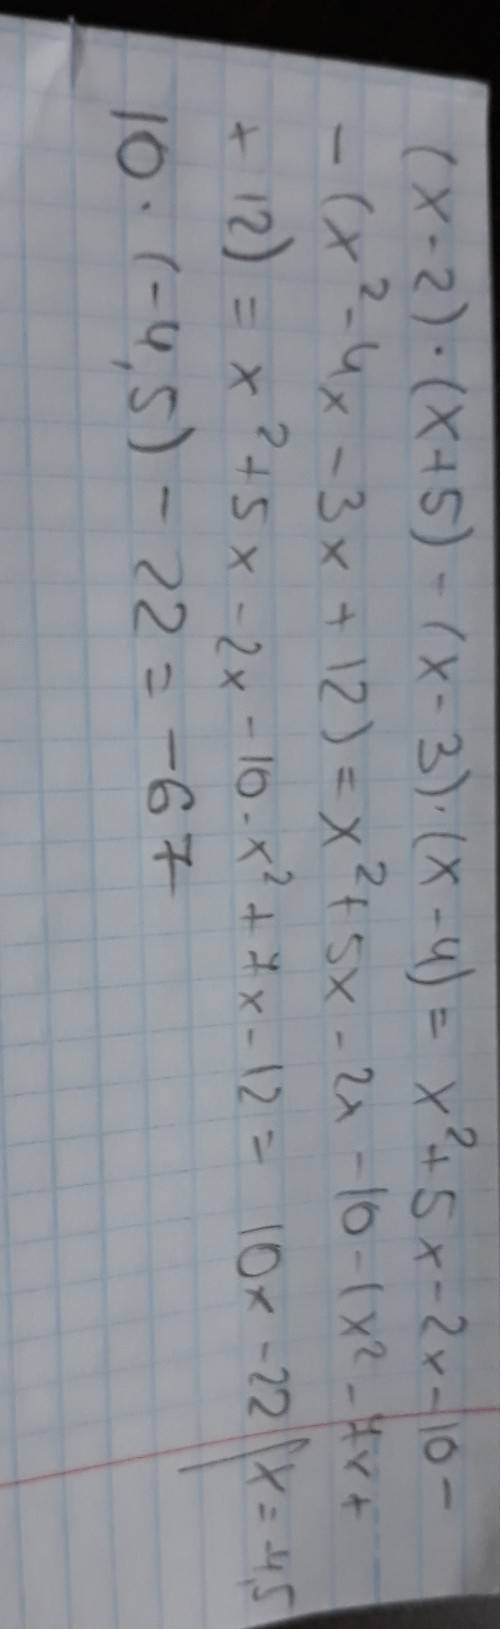 (x-2)·(x+5)-(x-3)·(x-4)= x²+5x-2x-10-
-(x²-4x-3x+12)=x²+5x-2x-10-(x²-7x+
+12)=x²+5x-2x-10-x²+7x-12= 10x-22 | x=-4,5
10·(-4,5)-22=-67